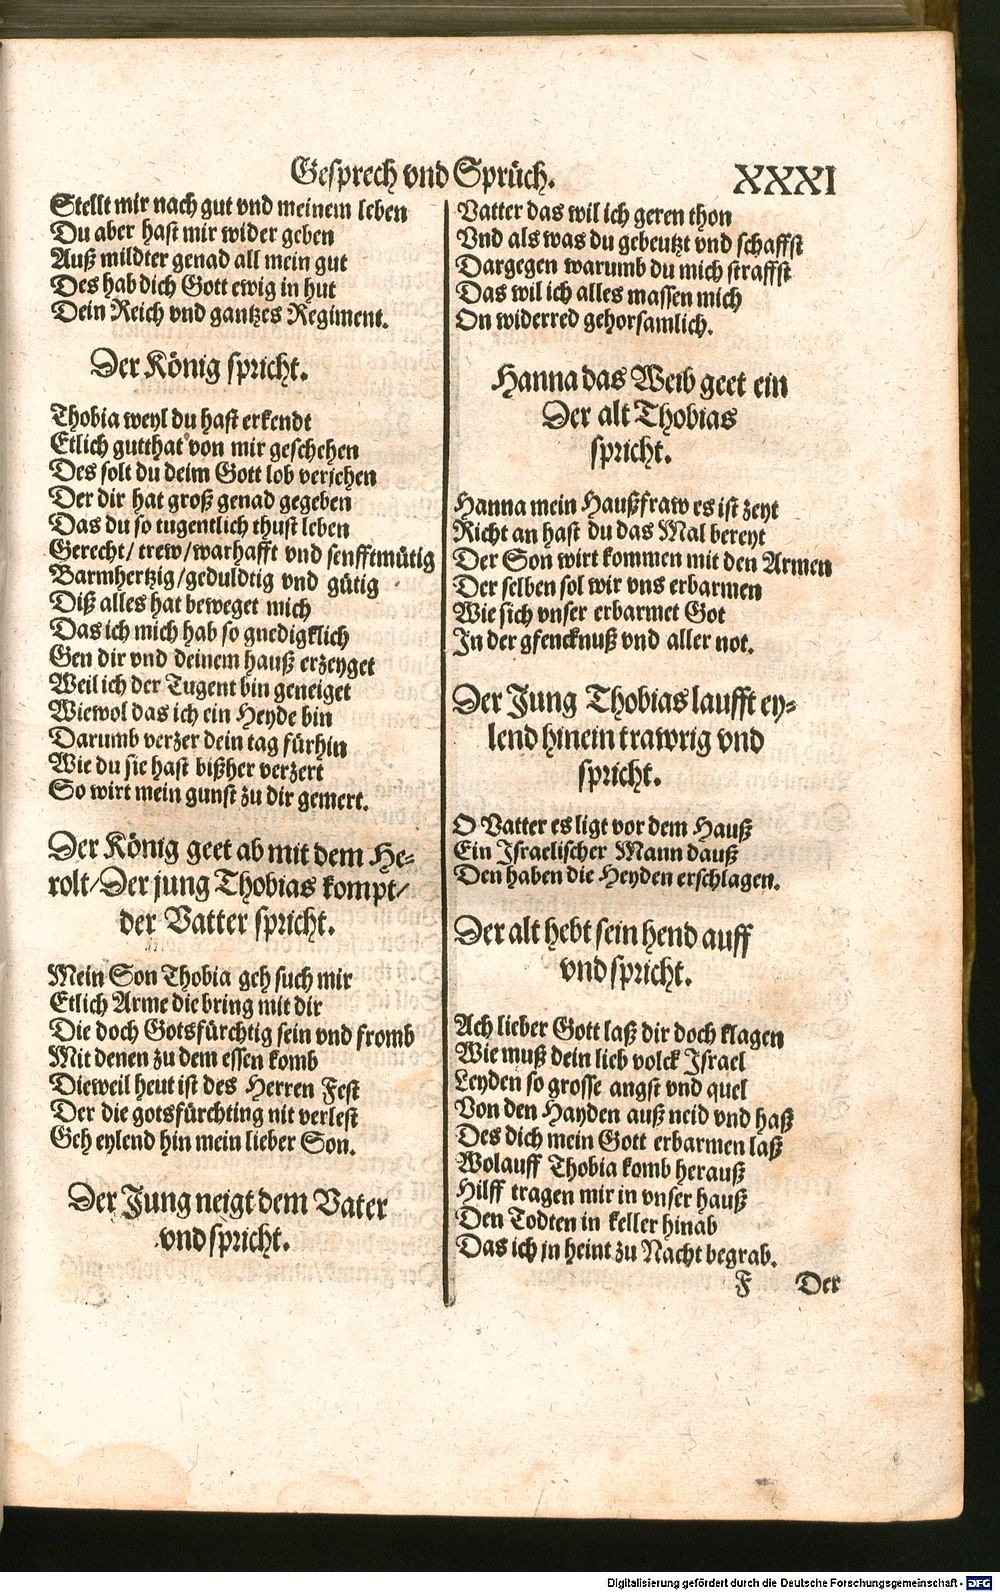 Gesprech vnd Sprüch. XXXI
Stellt mir nach gut vnd meinem leben
Du aber hast mir wider geben
Auß mildter genad all mein gut
Des hab dich Gott ewig in hut
Dein Reich vnd gantzes Regiment.
Der König spricht.
Thobia weyl du hast erkendt
Etlich gutthat von mir geschehen
Des solt du deim Gott lob veriehen
Der dir hat groß genad gegeben
Das du so tugentlich thust leben
Gerecht/ trew/warhafft vnd senfftmütig
Barmhertzig/geduldtig vnd gütig
Diß alles hat beweget mich
Das ich mich hab so gnedigklich
Gen dir vnd deinem hauß erzeyget
Weil ich der Tugent bin geneiget
Wiewol das ich ein Heyde bin
Darumb verzer dein tag fürhin
Wie du sie hast bißher verzert
So wirt mein gunst zu dir gemert.
Der König geet ab mit dem He-
rolt/Der jung Thobias kompt/
der Vatter spricht.
Mein Son Thobia geh such mir
Etlich Arme die bring mit dir
Die doch Gotsfürchtig sein vnd fromb
Mit denen zu dem essen komb
Dieweil heut ist des Herren Fest
Der die gotsfürchting nit verlest
Geh eylend hin mein lieber Son.
Der Jung neigt dem Vater
vnd spricht.
Vatter das wil ich geren thon
Vnd als was du gebeutzt vnd schaffst
Dargegen warumb du mich straffst
Das wil ich alles massen mich
On widerred gehorsamlich.
Hanna das Weib geet ein
Der alt Thobias
spricht.
Hanna mein Haußfraw es ist zeyt
Richt an hast du das Mal bereyt
Der Son wirt kommen mit den Armen
Der selben sol wir vns erbarmen
Wie sich vnser erbarmet Got
In der gfencknuß vnd aller not.
Der Jung Thobias laufft ey-
lend hinein trawrig vnd
spricht.
O Vatter es ligt vor dem Hauß
Ein Israelischer Mann dauß
Den haben die Heyden erschlagen.
Der alt hebt sein hend auff
vnd spricht.
Ach lieber Gott laß dir doch klagen
Wie muß dein lieb volck Israel
Leyden so grosse angst vnd quel
Von den Hayden auß neid vnd haß
Des dich mein Gott erbarmen laß
Wolauff Thobia komb herauß
Hilff tragen mir in vnser hauß
Den Todten in keller hinab
Das ich jn heint zu Nacht begrab.
F Der
Digitalisierung gefördert durch die Deutsche Forschungsgemeinschaft - DFG